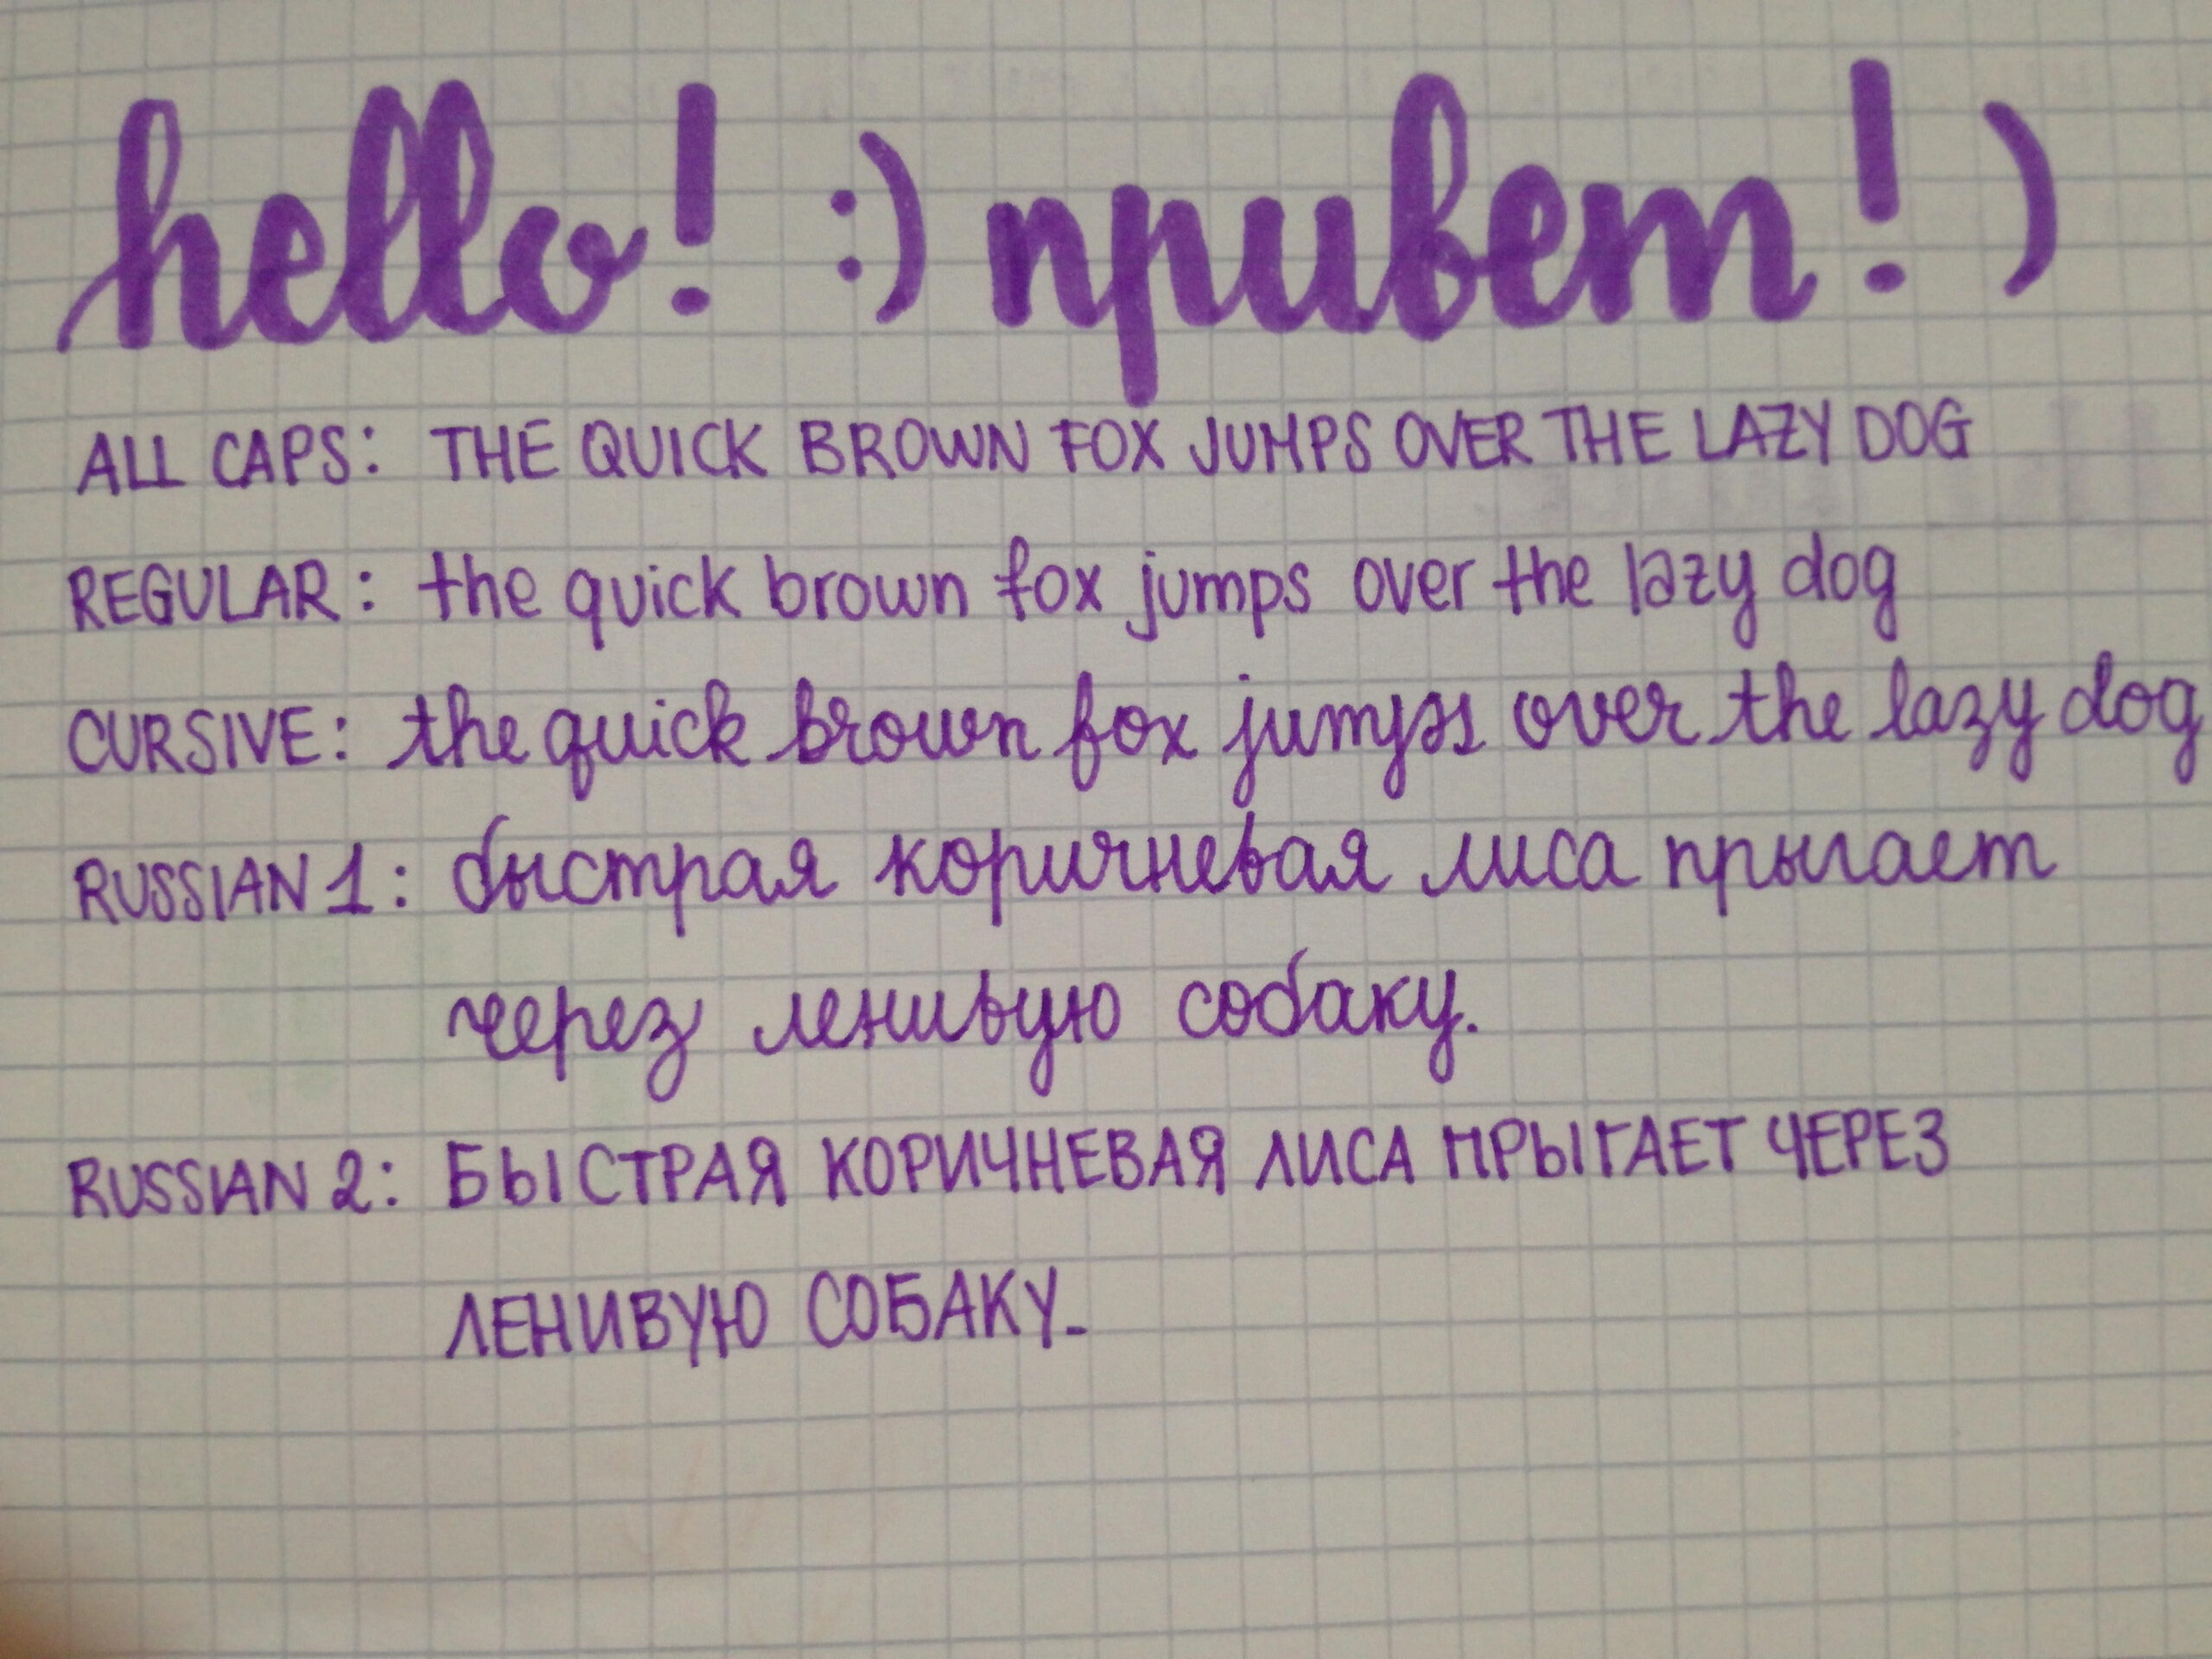 hello! :) привет! )
ALL CAPS: THE QUICK BROWN FOX JUMPS OVER THE LAZY DOG
REGULAR: the quick brown fox jumps over the lazy dog
CURSIVE: the quick brown fox jumps over the lazy dog
RUSSIAN 1: быстрая коричневая лиса прыгает
через ленивую собаку.
RUSSIAN 2: БЫСТРАЯ КОРИЧНЕВАЯ ЛИСА ПРЫГАЕТ ЧЕРЕЗ
ЛЕНИВУЮ СОБАКУ.